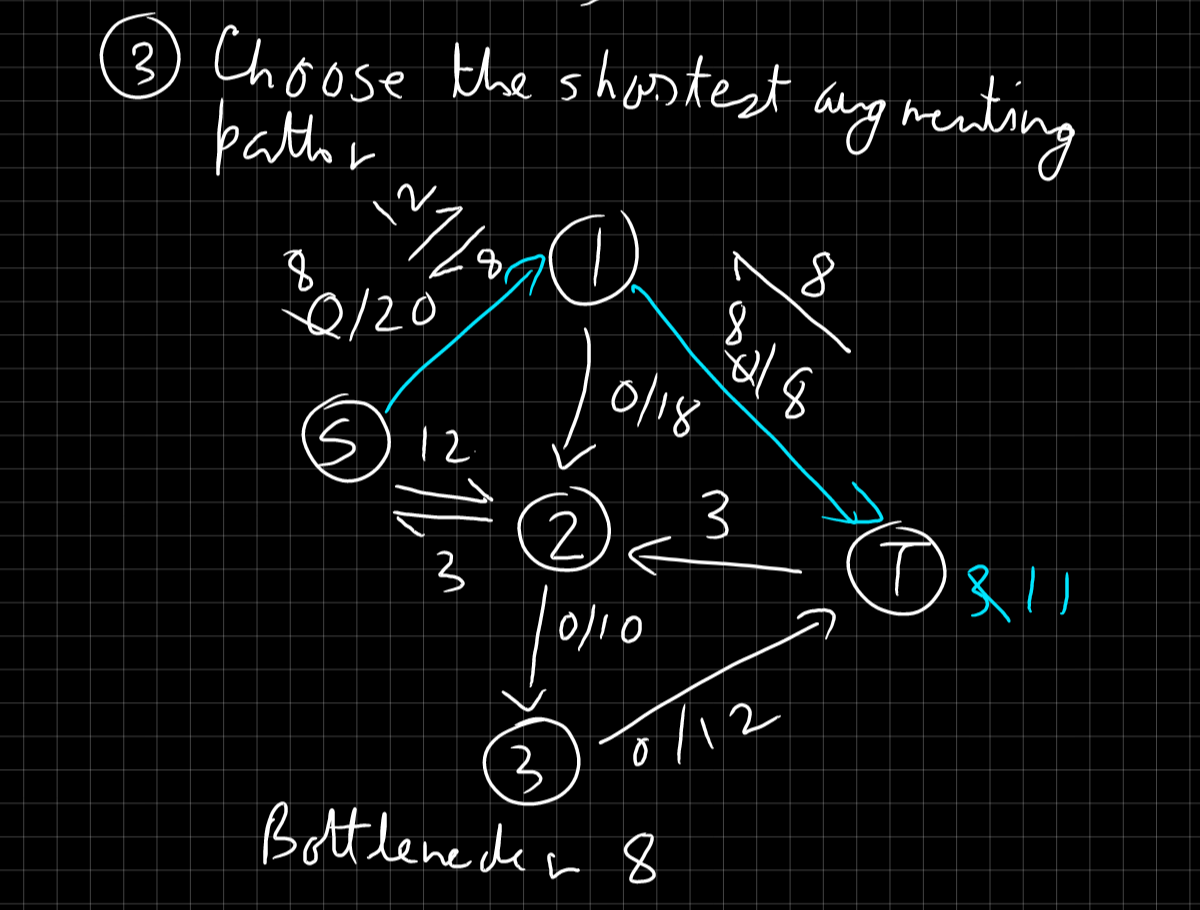 ③ Choose the shortest augmenting
path
12
8
8
0/20
1
8
8
0/8
0/18
S
12
2
3
3
T
8 11
0/10
3
0/12
Bottleneck 8